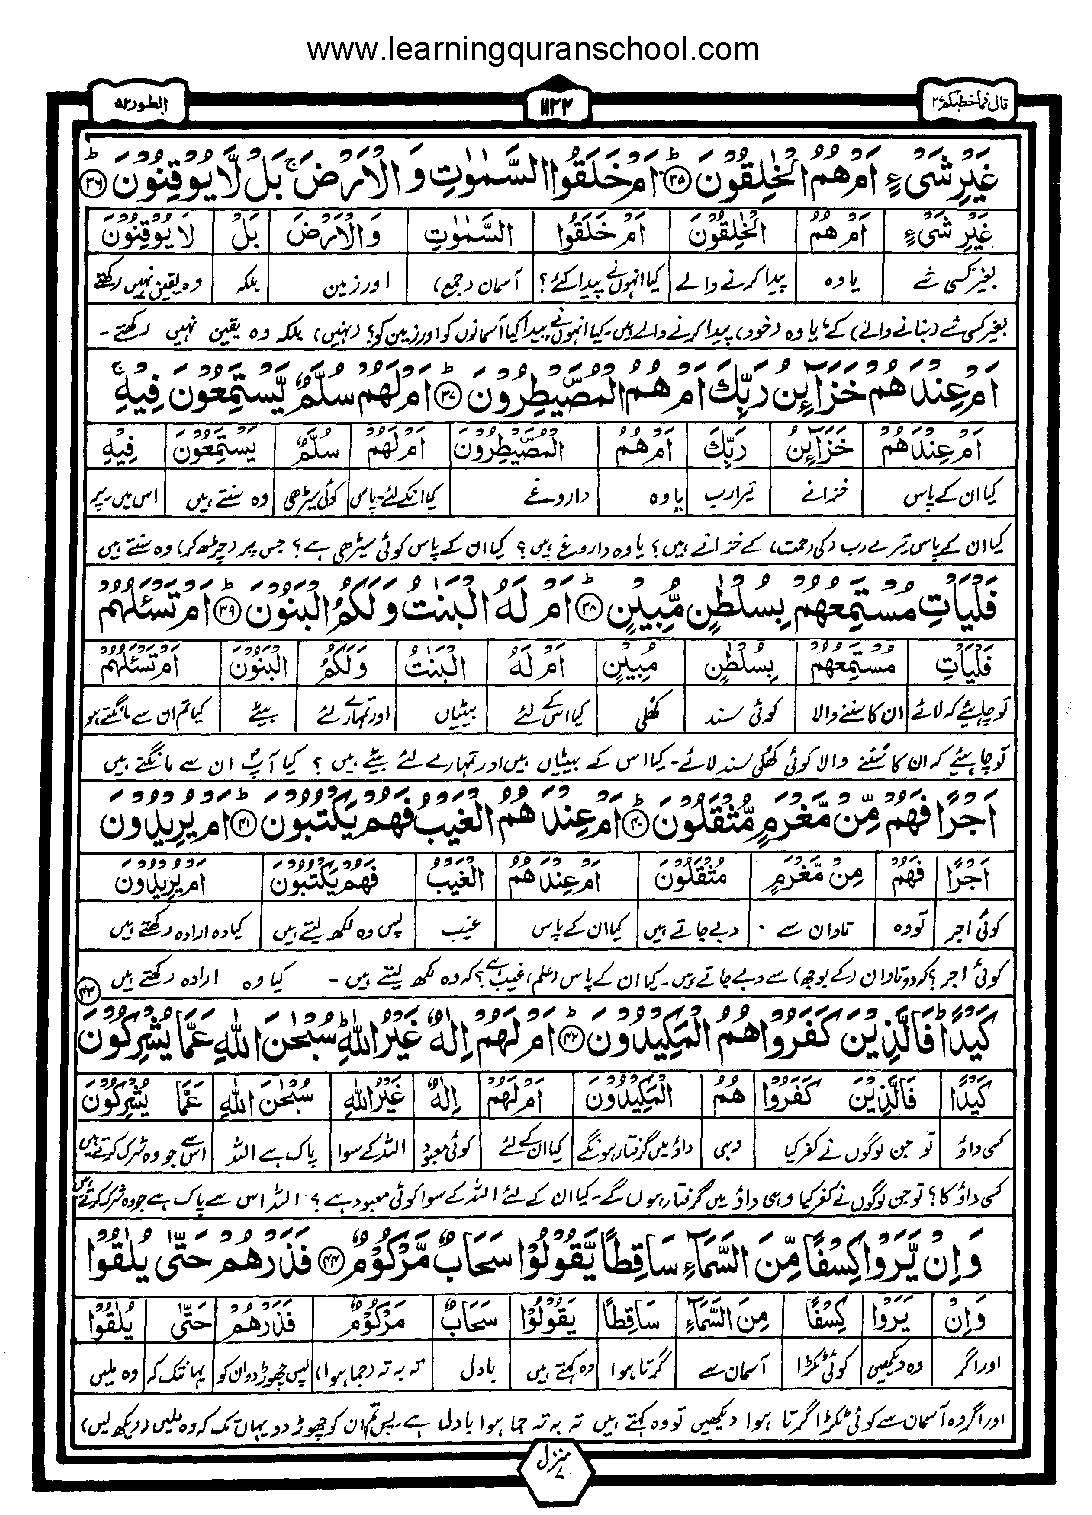 www.learningquranschool.com
قال فما خطبكم ۲۷
۱۱۲۲
الطور ۵۲
غَيْرِ شَىْءٍ اَمْ هُمُ الْخٰلِقُوْنَ ؕ﴿۳۵﴾ اَمْ خَلَقُوا السَّمٰوٰتِ وَ الْاَرْضَ ۚ بَلْ لَّا يُوْقِنُوْنَ ؕ﴿۳۶﴾
غَيْرِ شَىْءٍ اَمْ هُمُ الْخٰلِقُوْنَ اَمْ خَلَقُوا السَّمٰوٰتِ وَالْاَرْضَ بَلْ لَا يُوْقِنُوْنَ
بغیر کسی شے یا وہ پیدا کرنے والے کیا انہوں نے پیدا کئے؟ آسمان (جمع) اور زمین بلکہ وہ یقین نہیں رکھتے
بغیر کسی شے (بنانے والے) کے، یا وہ (خود) پیدا کرنے والے ہیں۔ کیا انہوں نے پیدا کیا آسمانوں کو اور زمین کو؟ (نہیں) بلکہ وہ یقین نہیں رکھتے۔
اَمْ عِنْدَهُمْ خَزَآئِنُ رَبِّكَ اَمْ هُمُ الْمُصَۜيْطِرُوْنَ ؕ﴿۳۷﴾ اَمْ لَهُمْ سُلَّمٌ يَّسْتَمِعُوْنَ فِيْهِ ۚ
اَمْ عِنْدَهُمْ خَزَآئِنُ رَبِّكَ اَمْ هُمُ الْمُصَۜيْطِرُوْنَ اَمْ لَهُمْ سُلَّمٌ يَسْتَمِعُوْنَ فِيْهِ
کیا ان کے پاس خزانے تیرا رب یا وہ داروغے کیا انکے لئے۔پاس کوئی سیڑھی وہ سنتے ہیں اس میں۔پر
کیا ان کے پاس تیرے رب (کی رحمت) کے خزانے ہیں؟ یا وہ داروغہ ہیں؟ کیا ان کے پاس کوئی سیڑھی ہے؟ جس پر (چڑھ کر) وہ سنتے ہیں
فَلْيَاْتِ مُسْتَمِعُهُمْ بِسُلْطٰنٍ مُّبِيْنٍ ؕ﴿۳۸﴾ اَمْ لَهُ الْبَنٰتُ وَلَكُمُ الْبَنُوْنَ ؕ﴿۳۹﴾ اَمْ تَسْـَٔلُهُمْ
فَلْيَاْتِ مُسْتَمِعُهُمْ بِسُلْطٰنٍ مُبِيْنٍ اَمْ لَهُ الْبَنٰتُ وَلَكُمُ الْبَنُوْنَ اَمْ تَسْـَٔلُهُمْ
تو چاہیئے کہ لائے ان کا سننے والا کوئی سند کھُلی کیا اس کے لئے بیٹیاں اور تمہارے لئے بیٹے کیا تم ان سے مانگتے ہو
تو چاہیئے کہ ان کا سُننے والا کوئی کھُلی سند لائے۔ کیا اس کے بیٹیاں ہیں اور تمہارے لئے بیٹے ہیں؟ کیا آپؐ ان سے مانگتے ہیں
اَجْرًا فَهُمْ مِّنْ مَّغْرَمٍ مُّثْقَلُوْنَ ؕ﴿۴۰﴾ اَمْ عِنْدَهُمُ الْغَيْبُ فَهُمْ يَكْتُبُوْنَ ؕ﴿۴۱﴾ اَمْ يُرِيْدُوْنَ
اَجْرًا فَهُمْ مِنْ مَّغْرَمٍ مُثْقَلُوْنَ اَمْ عِنْدَهُمُ الْغَيْبُ فَهُمْ يَكْتُبُوْنَ اَمْ يُرِيْدُوْنَ
کوئی اجر تو وہ تاوان سے دبے جاتے ہیں کیا ان کے پاس غیب پس وہ لکھ لیتے ہیں کیا وہ ارادہ رکھتے ہیں
کوئی اجر؟ کہ وہ تاوان (کے بوجھ) سے دبے جاتے ہیں۔ کیا ان کے پاس (علم) غیب ہے؟ کہ وہ لکھ لیتے ہیں۔ کیا وہ ارادہ رکھتے ہیں
كَيْدًا ؕ فَالَّذِيْنَ كَفَرُوْا هُمُ الْمَكِيْدُوْنَ ؕ﴿۴۲﴾ اَمْ لَهُمْ اِلٰهٌ غَيْرُ اللّٰهِ ؕ سُبْحٰنَ اللّٰهِ عَمَّا يُشْرِكُوْنَ ﴿۴۳﴾
كَيْدًا فَالَّذِيْنَ كَفَرُوْا هُمُ الْمَكِيْدُوْنَ اَمْ لَهُمْ اِلٰهٌ غَيْرُ اللّٰهِ سُبْحٰنَ اللّٰهِ عَمَّا يُشْرِكُوْنَ
کسی داؤ تو جن لوگوں نے کفر کیا وہی داؤ میں گرفتار ہونگے کیا ان کے لئے کوئی معبود اللہ کے سوا پاک ہے اللہ اس سے جو وہ شرک کرتے ہیں
کسی داؤ کا؟ تو جن لوگوں نے کفر کیا وہی داؤ میں گرفتار ہوں گے۔ کیا ان کے لئے اللہ کے سوا کوئی معبود ہے؟ اللہ اس سے پاک ہے جو وہ شرک کرتے ہیں
وَ اِنْ يَّرَوْا كِسْفًا مِّنَ السَّمَآءِ سَاقِطًا يَّقُوْلُوْا سَحَابٌ مَّرْكُوْمٌ ﴿۴۴﴾ فَذَرْهُمْ حَتّٰى يُلٰقُوْا
وَاِنْ يَرَوْا كِسْفًا مِنَ السَّمَآءِ سَاقِطًا يَقُوْلُوْا سَحَابٌ مَرْكُوْمٌ فَذَرْهُمْ حَتّٰى يُلٰقُوْا
اور اگر وہ دیکھیں کوئی ٹکڑا آسمان سے گرتا ہوا وہ کہتے ہیں بادل تہ بہ تہ (جما ہوا) پس چھوڑ دو ان کو یہانتک کہ وہ ملیں
اور اگر وہ آسمان سے کوئی ٹکڑا گرتا ہوا دیکھیں تو وہ کہتے ہیں تہ بہ تہ جما ہوا بادل ہے۔ پس تم ان کو چھوڑ دو یہاں تک کہ وہ ملیں (دیکھ لیں)
منزل ۷